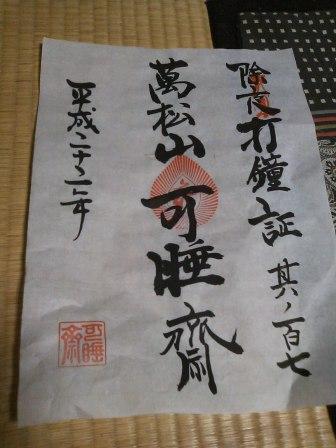 除夜打鐘之証 其ノ百七
萬松山 可睡齋
平成二十二年
可睡齋